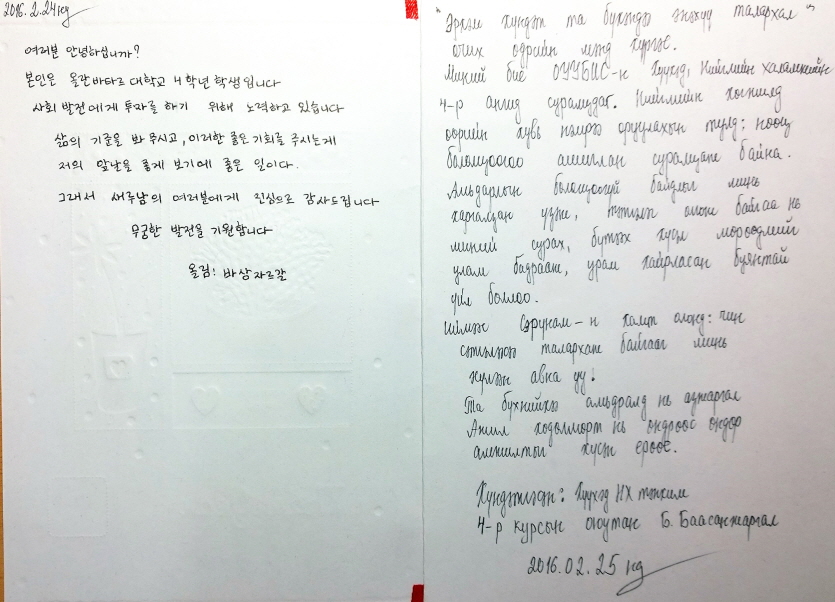 2016.2.24нд
여러분 안녕하십니까?
본인은 울란바타르 대학교 4학년 학생입니다
사회 발전에게 투자를 하기 위해 노력하고 있습니다
삶의 기준을 봐 주시고, 이러한 좋은 기회를 주시는게
저의 앞날을 좋게 보기에 좋은 일이다.
그래서 새루남의 여러분에게 진심으로 감사드립니다
무궁한 발전을 기원합니다
올림: 바상자르갈
"Эрхэм хүндэт та бүхэндээ энэхүү талархал"
өчих өдрийн мэнд хүргэе.
Миний бие ОУУБИС-н Хүүхэд, Нийгмийн халамжийн
4-р ангид суралцдаг. Нийгмийн хөгжилд
өөрийн хувь нэмрээ оруулахын тулд: нөөц
боломжоороо ашиглан суралцаж байна.
Амьдарлын боломжгүй байдлыг минь
харгалзан үзэж, тэтгэлэг олгож байгаа нь
миний сурах, бүтээх хүсэл мөрөөдлийг
улам бадрааж, урам хайрласан буянтай
үйл боллоо.
Иймээс Сэрунам-н хамт олонд: чин
сэтгэлээсээ талархаж байгааг минь
хүлээн авна уу!
Та бүхнийхээ амьдралд нь аз жаргал
Ажил хөдөлмөрт нь өндрөөс өндөр
амжилтыг хүсэн ерөөе.
Хүндэтгэсэн: Хүүхэд НХ тэнхим
4-р курсын оюутан Б. Баасанжаргал
2016.02.25 нд